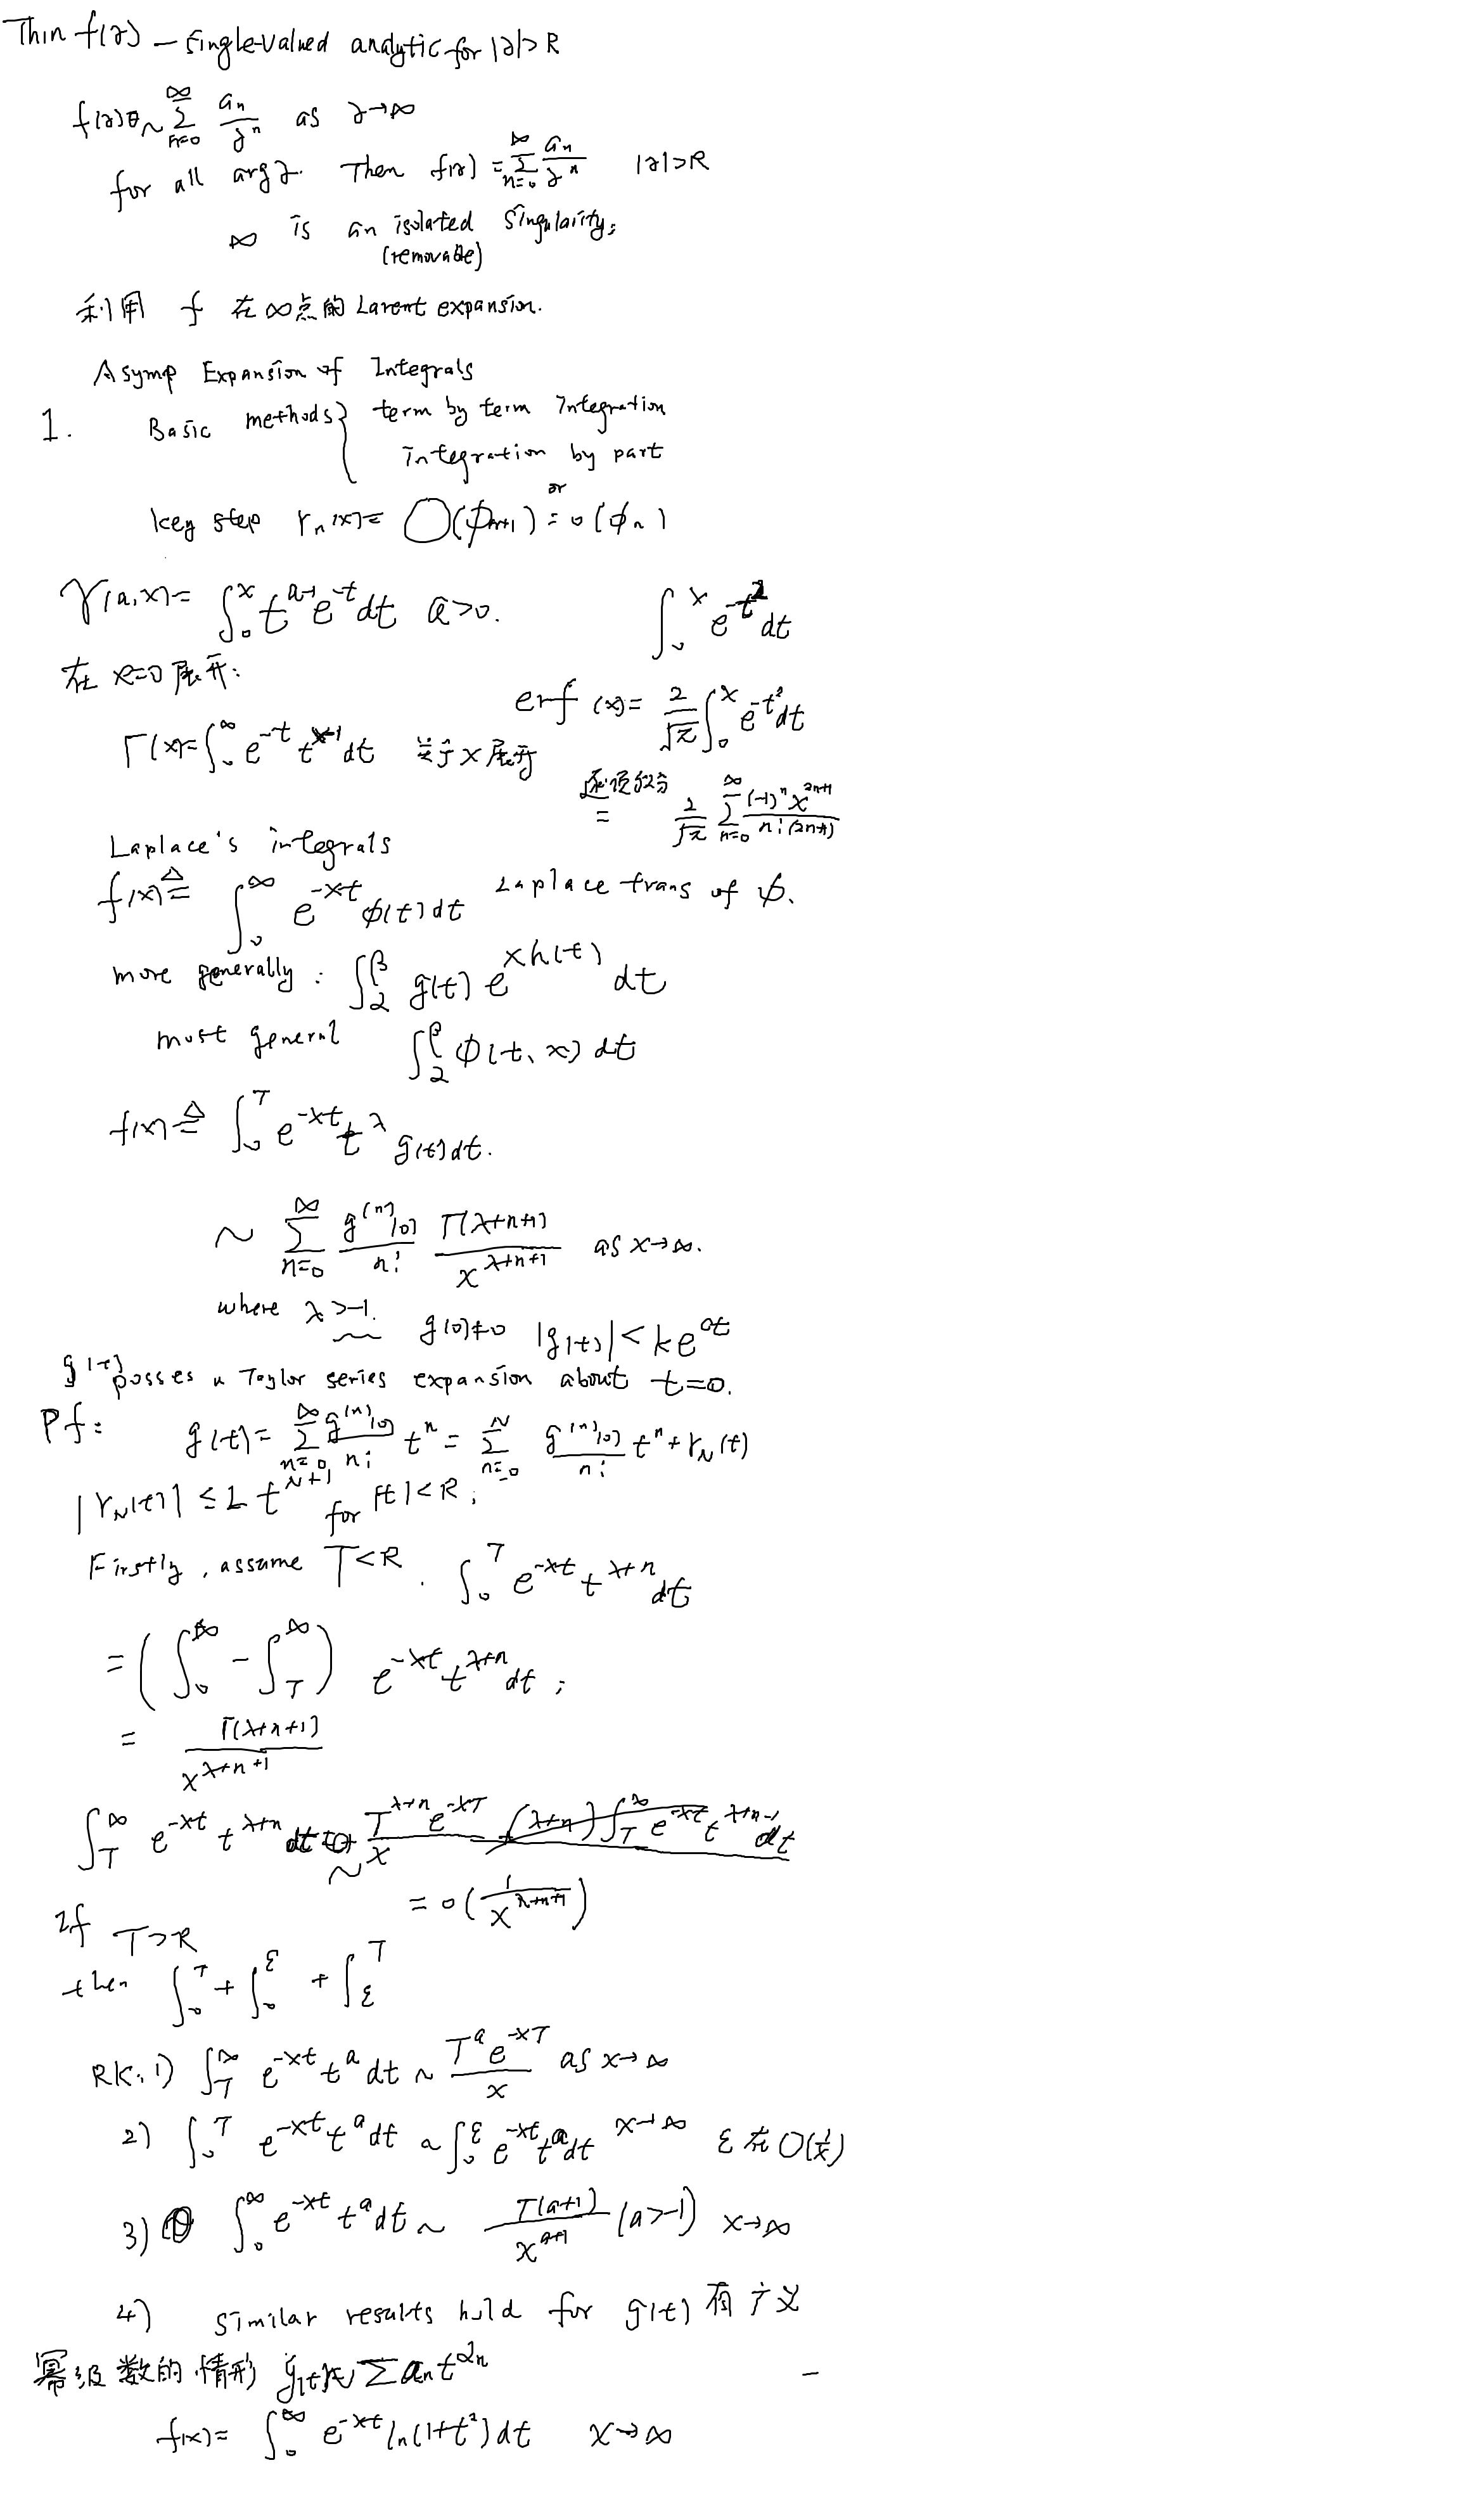 Thm f(z) — single-valued analytic for |z|>R
f(z) ~ ∑_{n=0}^∞ a_n/z^n as z→∞
for all arg z. Then f(z) = ∑_{n=0}^∞ a_n/z^n |z|>R
∞ is an isolated singularity.
(removable)
利用 f 在∞点的 Larent expansion.
Asymp Expansion of Integrals
1. Basic methods { term by term Integration
integration by part
key step r_n(x) = O(φ_{n+1}) or = o(φ_n)
γ(a,x) = ∫_0^x t^{a-1} e^{-t} dt a>0. ∫_0^x e^{-t^2} dt
在 x=0 展开:
erf(x) = 2/√π ∫_0^x e^{-t^2} dt
Γ(x) = ∫_0^∞ e^{-t} t^{x-1} dt 关于 x 展开
逐项积分 = 2/√π ∑_{n=0}^∞ (-1)^n x^{2n+1} / n!(2n+1)
Laplace's integrals
f(x) ≜ ∫_0^∞ e^{-xt} φ(t) dt Laplace trans of φ.
more generally: ∫_α^β g(t) e^{xh(t)} dt
most general ∫_α^β φ(t, x) dt
f(x) ≜ ∫_0^T e^{-xt} t^λ g(t) dt.
~ ∑_{n=0}^∞ g^{(n)}(0)/n! Γ(λ+n+1)/x^{λ+n+1} as x→∞.
where λ>-1. g(0)≠0 |g(t)| < k e^{ct}
g(t) posses a Taylor series expansion about t=0.
Pf: g(t) = ∑_{n=0}^∞ g^{(n)}(0)/n! t^n = ∑_{n=0}^N g^{(n)}(0)/n! t^n + r_N(t)
|r_N(t)| ≤ L t^{N+1} for |t|<R;
Firstly, assume T<R. ∫_0^T e^{-xt} t^{λ+n} dt
= (∫_0^∞ - ∫_T^∞) e^{-xt} t^{λ+n} dt;
= Γ(λ+n+1)/x^{λ+n+1}
∫_T^∞ e^{-xt} t^{λ+n} dt ~ T^{λ+n} e^{-xT}/x
= o(1/x^{λ+n+1})
If T>R
then ∫_0^T + ∫_0^ε + ∫_ε^T
RK. 1) ∫_T^∞ e^{-xt} t^a dt ~ T^a e^{-xT}/x as x→∞
2) ∫_0^T e^{-xt} t^a dt ~ ∫_0^ε e^{-xt} t^a dt x→∞ ε 在 O(1/x)
3) ∫_0^∞ e^{-xt} t^a dt ~ Γ(a+1)/x^{a+1} (a>-1) x→∞
4) Similar results hold for g(t) 有广义
幂级数的情形 g(t) ~ ∑ a_n t^{α_n}
f(x) = ∫_0^∞ e^{-xt} ln(1+t^2) dt x→∞